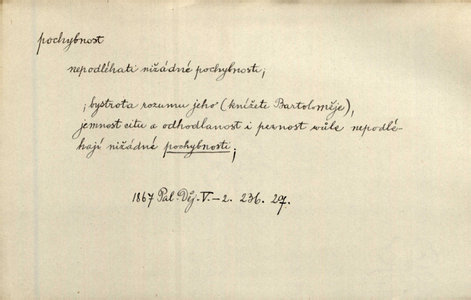 pochybnost
nepodléhati nižádné pochybnosti;
; bystrota rozumu jeho (knížete Bartoloměje),
jemnost citu a odhodlanost i pevnost vůle nepodlé-
hají nižádné pochybnosti;
1867 Pal. Děj. V.-2. 236. 27.